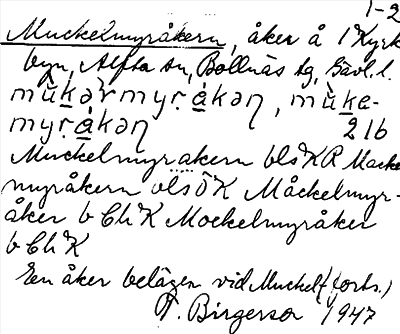 1-2
Muckelmyråkern, åker å 1 Kyrk
byn, Alfta sn, Bollnäs tg, Gävl. l.
mùkə̀rmyr̥ákəɳ, mùkə-
myr̥ákəɳ 21b
Muckelmyrakern bls°K R Macke
myråkern blsÖK Måckelmyr-
åker b Ch°K Mockelmyråker
b Ch°K
En åker belägen vid Muckel (forts.)
T. Birgersson 1947